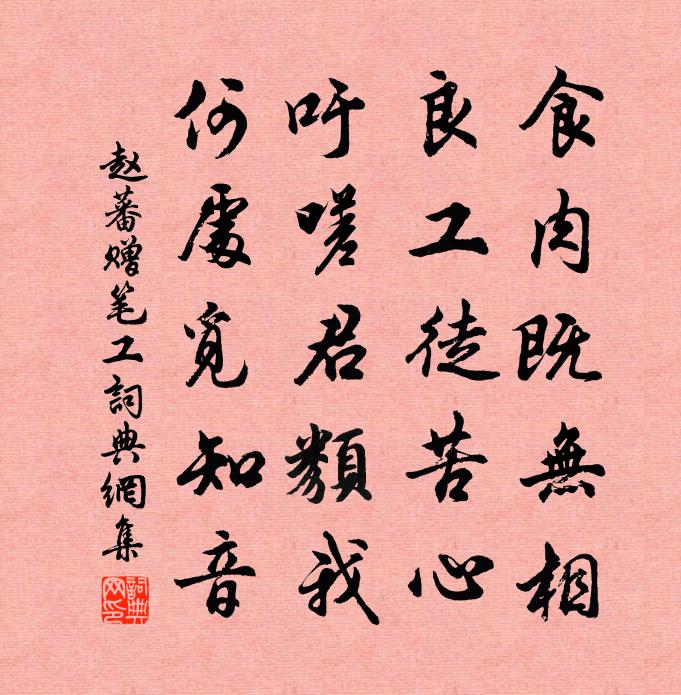 食肉既無相
良工徒苦心
吁嗟君類我
何處覓知音
赵蕃贈笔工詞典網集
詞典
网印